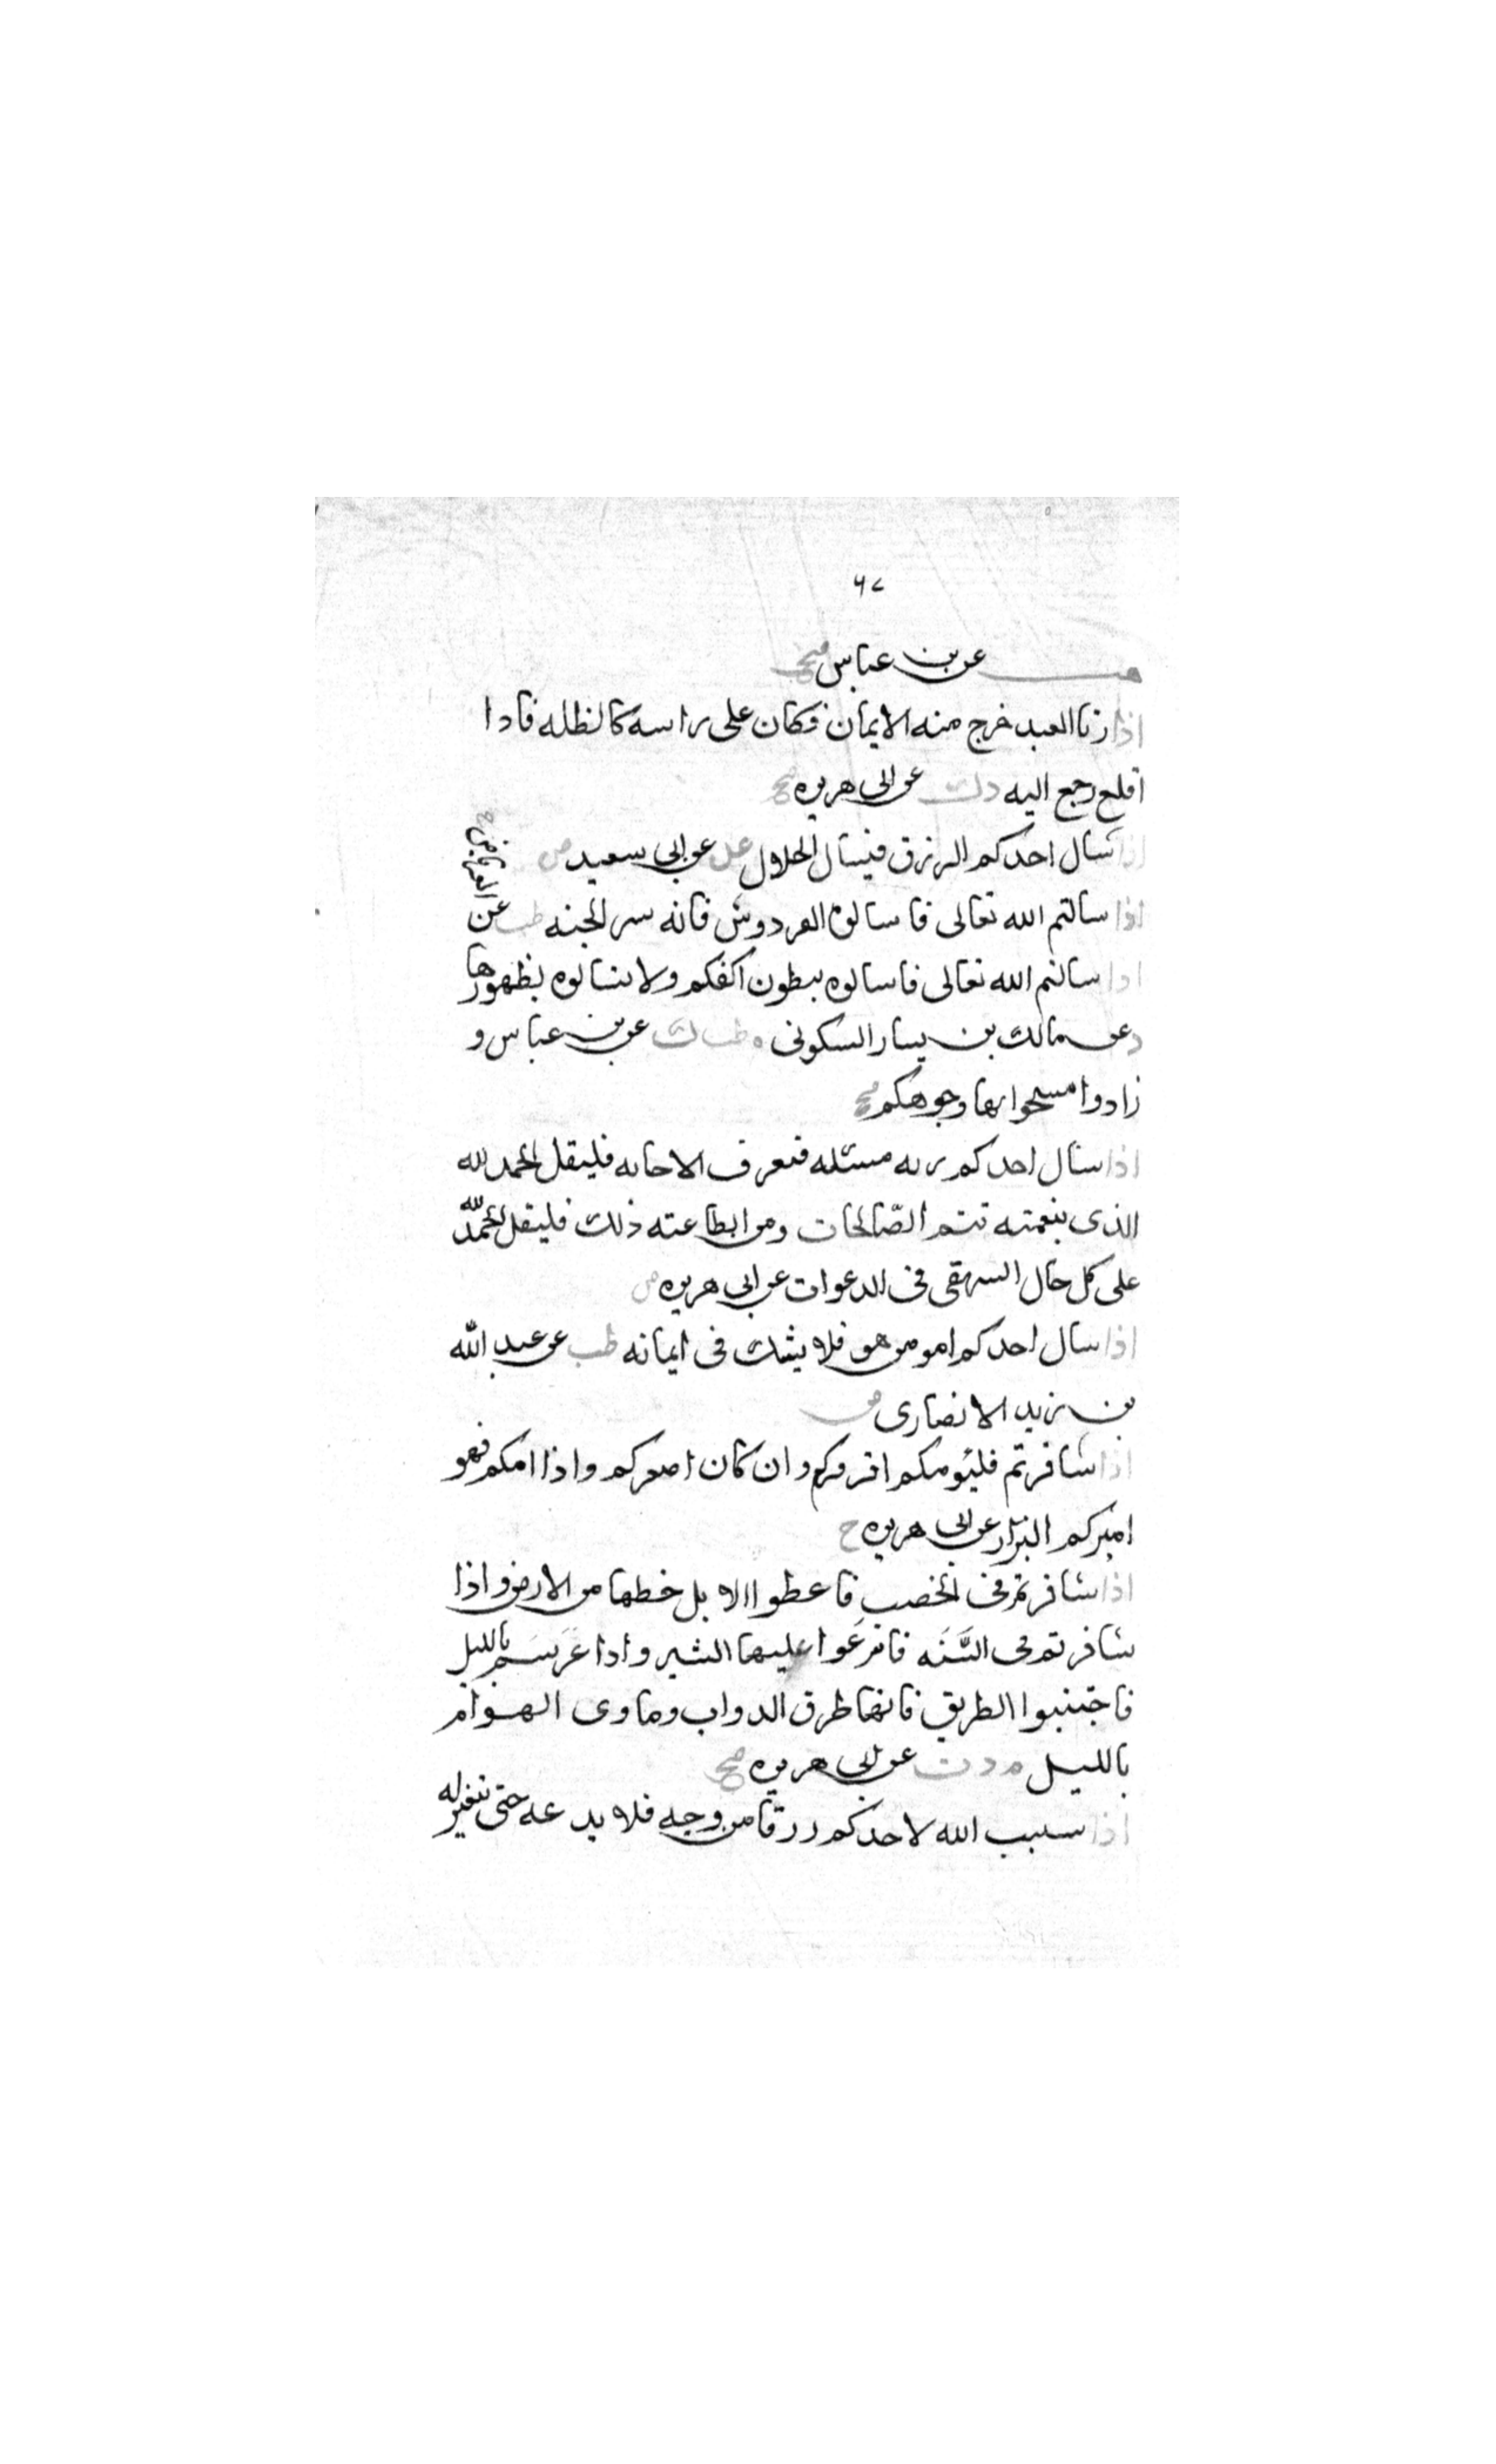 ٦٧
هب عن بن عباس صح
اذا زنا العبد خرج منه الايمان فكان على راسه كالظله فاذا
اقلع رجع اليه د ك عن ابى هريره صح
اذا سال احدكم الرزق فليسال الحلال عد عن ابى سعيد ض
اذا سالتم الله تعالى فاسالوه الفردوس فانه سر الجنه طب عن العرباض
اذا سالتم الله تعالى فاسالوه ببطون اكفكم ولا تسالوه بظهورها
د عن مالك بن يسار السكونى ه طب ك عن بن عباس و
زادوا مسحوا بها وجوهكم صح
اذا سال احدكم ربه مسئله فتعرف الاجابه فليقل الحمد لله
الذى بنعمته تتم الصّالحات ومن ابطا عنه ذلك فليقل الحمد لله
على كل حال البيهقى فى الدعوات عن ابى هريره ض
اذا سال احدكم امومن هو فلا يشك فى ايمانه طب عن عبد الله
بن زيد الانصارى ض
اذا سافرتم فليؤمكم اقروكم وان كان اصغركم واذا امكم فهو
اميركم البزار عن ابى هريره ح
اذا سافرتم فى الخصب فاعطوا الابل حظها من الارض واذا
سافرتم فى السَّنَه فاسرعوا عليها السير واذا عَرستم بالليل
فاجتنبوا الطريق فانها طرق الدواب وماوى الهوام
بالليل م د ت عن ابى هريره صح
اذا سبب الله لاحدكم رزقا من وجه فلا يدعه حتى يتغير له